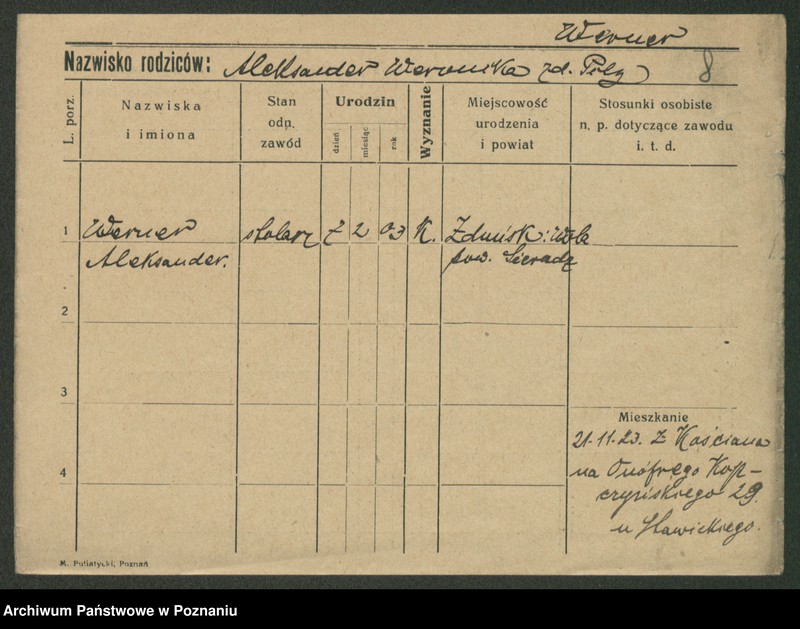 Werner
Nazwisko rodziców: Aleksander Weronika zd. Pilz 8
L. porz.
Nazwiska i imiona
Stan odn. zawód
Urodzin
dzień
miesiąc
rok
Wyznanie
Miejscowość urodzenia i powiat
Stosunki osobiste n. p. dotyczące zawodu i. t. d.
1 Werner stolarz 7 2 03 K. Zduńsk: Wola
Aleksander. pow. Sieradz
2
3
Mieszkanie
21-11-23. z Kościana
4
na Onófrego Kop-
czyńskiego 29.
u Sławickiego.
M. Putiatycki, Poznań
Archiwum Państwowe w Poznaniu